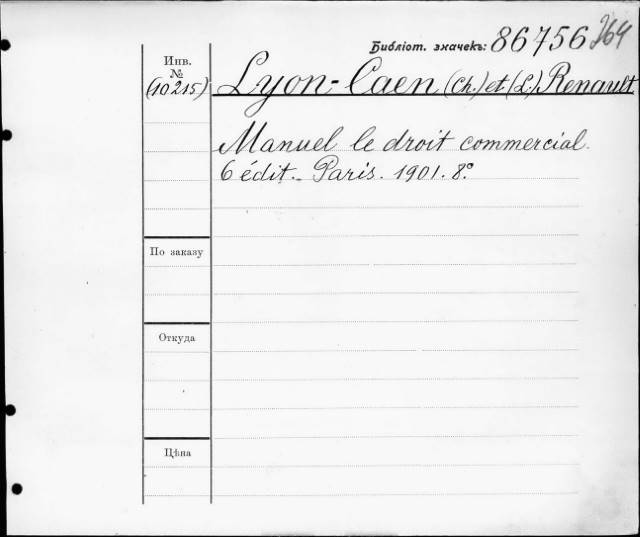 Библіот. значекъ: 86756 364
Инв.
№
(10215)
Lyon-Caen (Ch.) et (L.) Renault.
Manuel le droit commercial.
6 édit. - Paris. 1901. 8º
По заказу
Откуда
Цѣна